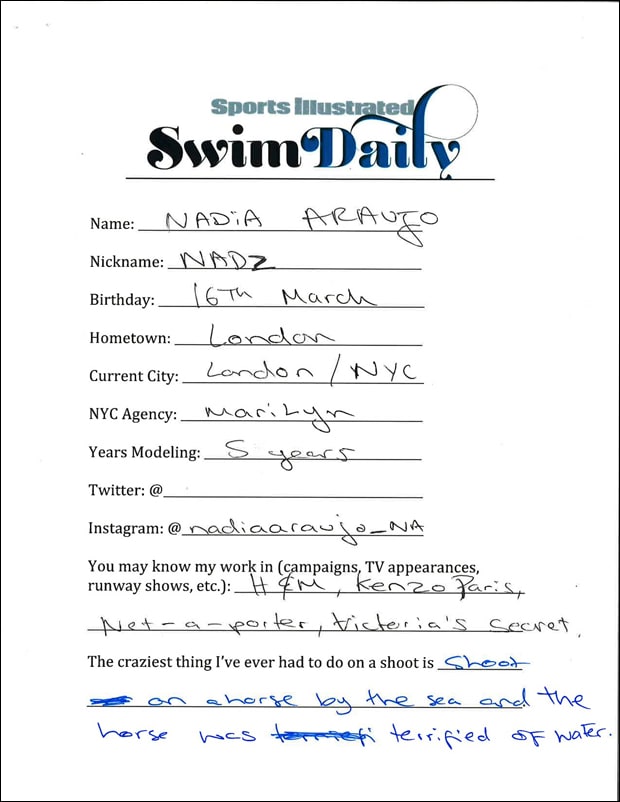 Sports Illustrated
Swim Daily
Name: NADiA ARAUJO
Nickname: NADZ
Birthday: 16Th March
Hometown: London
Current City: London / NYC
NYC Agency: Marilyn
Years Modeling: 5 years
Twitter: @
Instagram: @ nadiaaraujo_NA
You may know my work in (campaigns, TV appearances,
runway shows, etc.): H&M, Kenzo Paris,
Net-a-porter, Victoria's Secret,
The craziest thing I've ever had to do on a shoot is Shoot
on a horse by the sea and the
horse was terrified of water.